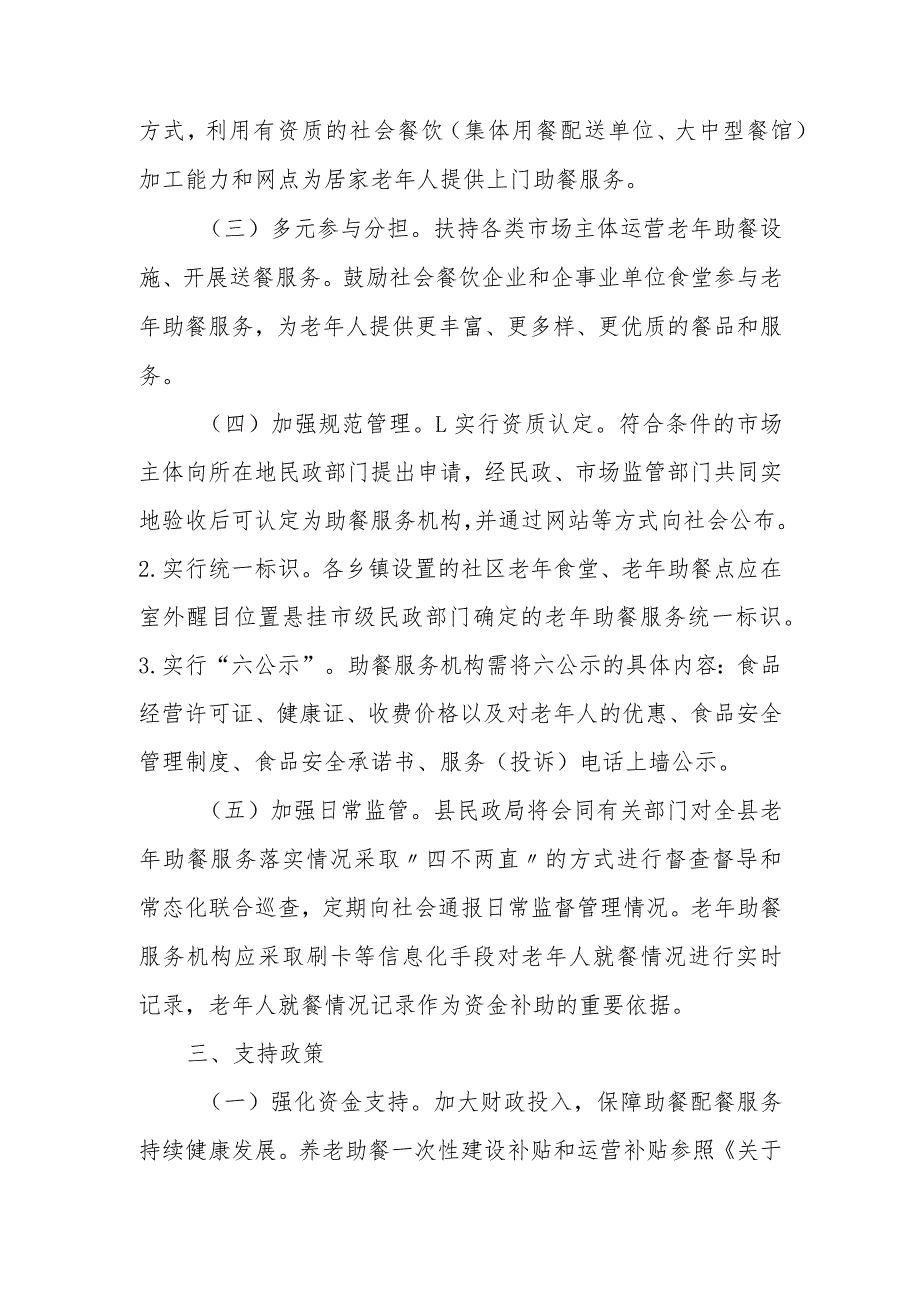 方式，利用有资质的社会餐饮（集体用餐配送单位、大中型餐馆）
加工能力和网点为居家老年人提供上门助餐服务。
（三）多元参与分担。扶持各类市场主体运营老年助餐设
施、开展送餐服务。鼓励社会餐饮企业和企事业单位食堂参与老
年助餐服务，为老年人提供更丰富、更多样、更优质的餐品和服
务。
（四）加强规范管理。L 实行资质认定。符合条件的市场
主体向所在地民政部门提出申请，经民政、市场监管部门共同实
地验收后可认定为助餐服务机构，并通过网站等方式向社会公布。
2.实行统一标识。各乡镇设置的社区老年食堂、老年助餐点应在
室外醒目位置悬挂市级民政部门确定的老年助餐服务统一标识。
3.实行“六公示”。助餐服务机构需将六公示的具体内容：食品
经营许可证、健康证、收费价格以及对老年人的优惠、食品安全
管理制度、食品安全承诺书、服务（投诉）电话上墙公示。
（五）加强日常监管。县民政局将会同有关部门对全县老
年助餐服务落实情况采取〃四不两直〃的方式进行督查督导和
常态化联合巡查，定期向社会通报日常监督管理情况。老年助餐
服务机构应采取刷卡等信息化手段对老年人就餐情况进行实时
记录，老年人就餐情况记录作为资金补助的重要依据。
三、支持政策
（一）强化资金支持。加大财政投入，保障助餐配餐服务
持续健康发展。养老助餐一次性建设补贴和运营补贴参照《关于